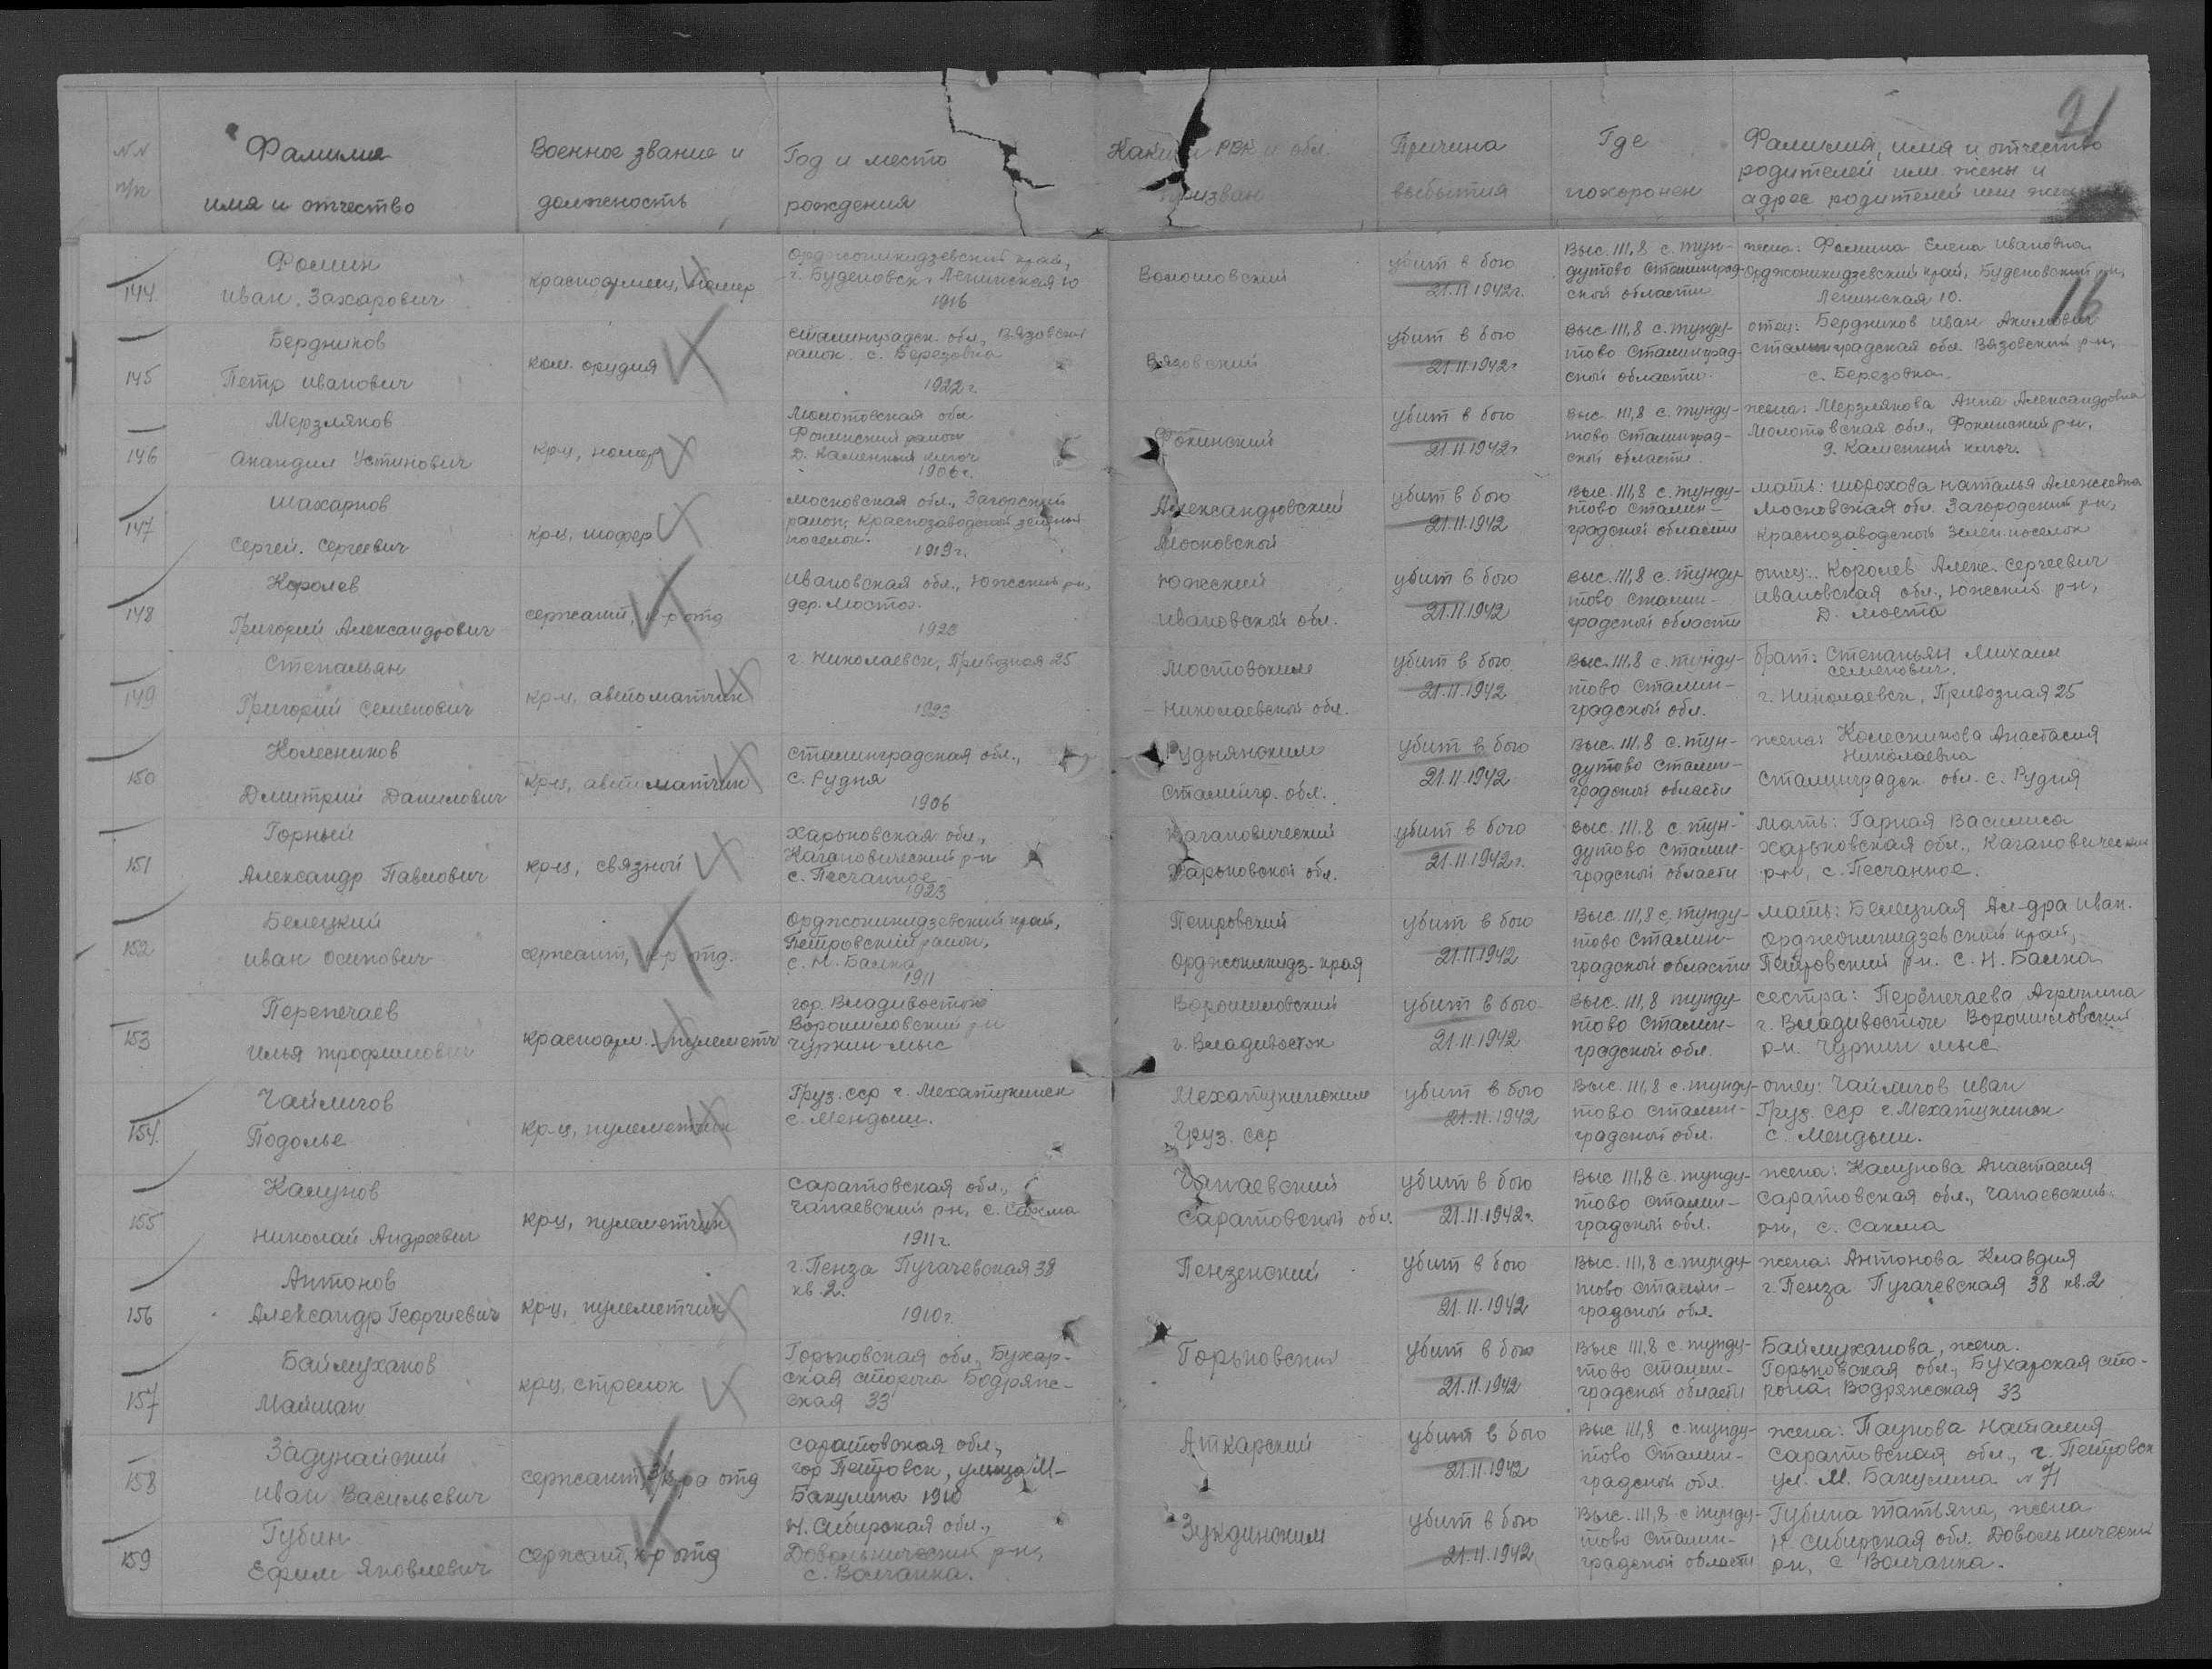 21
16
NN п/п
Фамилия имя и отчество
Военное звание и должность
Год и место рождения
Каким РВК и обл. призван
Причина выбытия
Где похоронен
Фамилия, имя и отчество родителей или жены и адрес родителей или
144.
Фомин
Иван Захарович
красноармеец, номер
Орджоникидзевский край,
г. Буденовск, Ленинская 10
1916
убит в бою
21.11.1942г.
Выс. 111,8 с. Тун-
дутово Сталинград-
ской области
жена: Фомина Елена Ивановна
Орджоникидзевский край, Буденовский р-н,
Ленинская 10.
145
Бердников
Петр Иванович
ком. орудия
Сталинградск. обл., Вязовский
район. с. Березовка
1922г.
Вязовский
убит в бою
21.11.1942г
Выс. 111,8 с. Тунду-
тово Сталинград-
ской области.
отец: Бердников Иван Акимович
Сталинградская обл. Вязовский р-н,
с. Березовка.
146
Мерзляков
Анандил Устинович
кр-ц, номер
Молотовская обл
Фокинский район
д. Каменный ключ
1906г.
Фокинский
убит в бою
21.11.1942г
Выс. 111,8 с. Тунду-
тово Сталинград-
ской области.
жена: Мерзлякова Анна Александровна
Молотовская обл., Фокинский р-н,
д. Каменный ключ.
147
Шахарков
Сергей Сергеевич
кр-ц, шофер
Московская обл., Загорский
район, Краснозаводской зеленый
поселок.
1919г.
Александровский
Московской
убит в бою
21.11.1942
Выс. 111,8 с. Тунду-
тово Сталин-
градской области
мать: Шорохова Наталья Алексеевна
Московская обл. Загородский р-н,
Краснозаводской Зелен. поселок
148
Королев
Григорий Александрович
сержант, к-р отд
Ивановская обл., Южский р-н,
дер. Мосто.
1923
Южский
Ивановской обл.
убит в бою
21.11.1942
Выс. 111,8 с. Тунду-
тово Сталин-
градской области
отец: Королев Алекс. Сергеевич
Ивановская обл., Южский р-н,
д. Моста
149
Степаньян
Григорий Семенович
кр-ц, автоматчик
г. Николаевск, Привозная 25
1923
Мостовским
Николаевской обл.
убит в бою
21.11.1942
Выс. 111,8 с. Тунду-
тово Сталин-
градской обл.
брат: Степаньян Михаил
Семенович.
г. Николаевск, Привозная 25
150
Колесников
Дмитрий Данилович
кр-ц, автоматчик
Сталинградская обл.,
с. Рудня
1906
Руднянским
Сталингр. обл.
убит в бою
21.11.1942
Выс. 111,8 с. Тун-
дутово Сталин-
градской области
жена: Колесникова Анастасия
Николаевна
Сталинградск. обл. с. Рудня
151
Горный
Александр Павлович
кр-ц, связной
Харьковская обл.,
Кагановический р-н
с. Песчанное
1923
Кагановический
Харьковской обл.
убит в бою
21.11.1942г.
Выс. 111,8 с. Тун-
дутово Сталин-
градской области
мать: Гарная Василиса
Харьковская обл., Кагановический
р-н, с. Песчанное.
152
Белецкий
Иван Осипович
сержант, к-р отд.
Орджоникидзевский край,
Петровский район,
с. Н. Балка
1911
Петровский
Орджоникидз. края
убит в бою
21.11.1942
Выс. 111,8 с. Тунду-
тово Сталин-
градской области
мать: Белецкая Ал-дра Иван.
Орджоникидзевский край,
Петровский р-н. с. Н. Балка
153
Перепечаев
Илья Трофимович
красноарм. пулеметч
гор. Владивосток
Ворошиловский р-н
Чуркин-мыс
Ворошиловский
г. Владивосток
убит в бою
21.11.1942
Выс. 111,8 Тунду-
тово Сталин-
градской обл.
сестра: Перепечаева Агрипина
г. Владивосток Ворошиловский
р-н. Чуркин мыс
154.
Чайлигов
Подолье
кр-ц, пулеметчик
Груз. сср г. Мехатукинск
с. Мендыш.
Мехатукинским
Груз. сср
убит в бою
21.11.1942
Выс. 111,8 с. Тунду-
тово Сталин-
градской обл.
отец: Чайлигов Иван
Груз. сср г. Мехатукинск
с. Мендыш.
155
Калунов
Николай Андреевич
кр-ц, пулеметчик
Саратовская обл.,
Чапаевский р-н, с. Сакма
1911г.
Чапаевский
Саратовской обл.
убит в бою
21.11.1942г.
Выс. 111,8 с. Тунду-
тово Сталин-
градской обл.
жена: Калунова Анастасия
Саратовская обл., Чапаевский
р-н, с. Сакма
156
Антонов
Александр Георгиевич
кр-ц, пулеметчик
г. Пенза Пугачевская 38
кв. 2.
1910г.
Пензенский
убит в бою
21.11.1942
Выс. 111,8 с. Тунду-
тово Сталин-
градской обл.
жена: Антонова Клавдия
г. Пенза Пугачевская 38 кв. 2
157
Баймуханов
Майшан
кр-ц, стрелок
Горьковская обл., Бухар-
ская сторона Водрянс-
ская 33
Горьковский
убит в бою
21.11.1942
Выс 111,8 с. Тунду-
тово Сталин-
градской области
Баймуханова, жена.
Горьковская обл., Бухарская сто-
рона, Водрянсская 33
158
Задунайский
Иван Васильевич
сержант, к-ра отд
Саратовская обл.,
гор Петровск, улица М-
Бакулина 1910
Аткарский
убит в бою
21.11.1942
Выс 111,8 с. Тунду-
тово Сталин-
градской обл.
жена: Паунова Наталия
Саратовская обл., г. Петровск
ул. М. Бакулина N 71
159
Губин
Ефим Яковлевич
сержант, к-р отд
Н. Сибирская обл.,
Довольнический р-н,
с. Волчанка.
Зуждинским
убит в бою
21.11.1942
Выс. 111,8 с Тунду-
тово Сталин-
градской области
Губина Татьяна, жена
Н. Сибирская обл. Довольнический
р-н, с Волчанка.